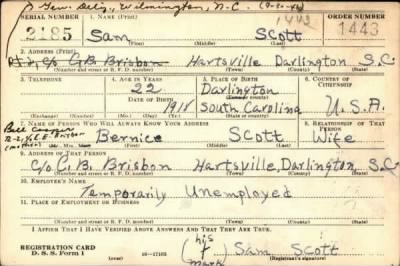 Gen. Del., Wilmington, N.C.
SERIAL NUMBER 1. NAME (Print) ORDER NUMBER
2185 Sam Scott 1443
(First) (Middle) (Last)
2. ADDRESS (Print)
c/o G.B. Brisbon Hartsville Darlington S.C.
(Number and street or R. F. D. number) (Town) (County) (State)
3. TELEPHONE 4. AGE IN YEARS 5. PLACE OF BIRTH 6. COUNTRY OF CITIZENSHIP
22 Darlington
(Town or county)
DATE OF BIRTH
1918 South Carolina U.S.A.
(Exchange) (Number) (Mo.) (Day) (Yr.) (State or country)
7. NAME OF PERSON WHO WILL ALWAYS KNOW YOUR ADDRESS 8. RELATIONSHIP OF THAT PERSON
Bernice Scott Wife
(Mr., Mrs., Miss) (First) (Middle) (Last)
9. ADDRESS OF THAT PERSON
c/o G.B. Brisbon Hartsville, Darlington, S.C.
(Number and street or R. F. D. number) (Town) (County) (State)
10. EMPLOYER'S NAME
Temporarily Unemployed
11. PLACE OF EMPLOYMENT OR BUSINESS
(Number and street or R. F. D. number) (Town) (County) (State)
I AFFIRM THAT I HAVE VERIFIED ABOVE ANSWERS AND THAT THEY ARE TRUE.
REGISTRATION CARD
D. S. S. Form 1 16—17105
(his mark) Sam Scott
(Registrant's signature)